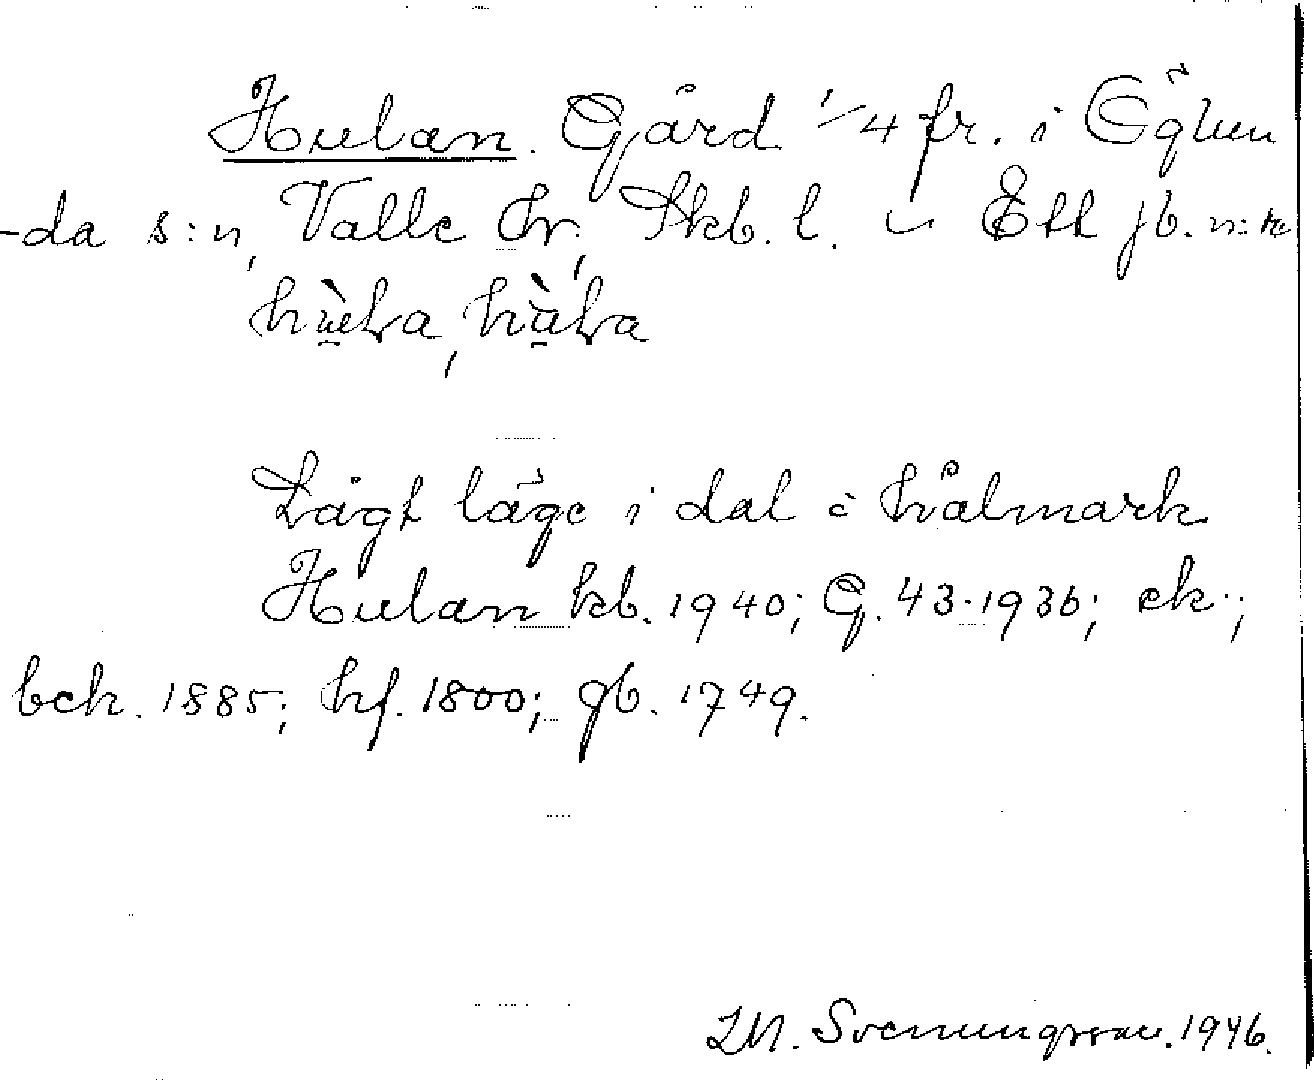 Hulan. Gård 1/4 fr. i Eglun
-da s:n, Valle hr, Skb. l. Ett jb. n:r
Lågt läge i dal o hålmark
Hulan kb. 1940; G. 43. 1936; ek.;
bek. 1885; hf. 1800; gb. 1749.
Svenungsson. 1946.